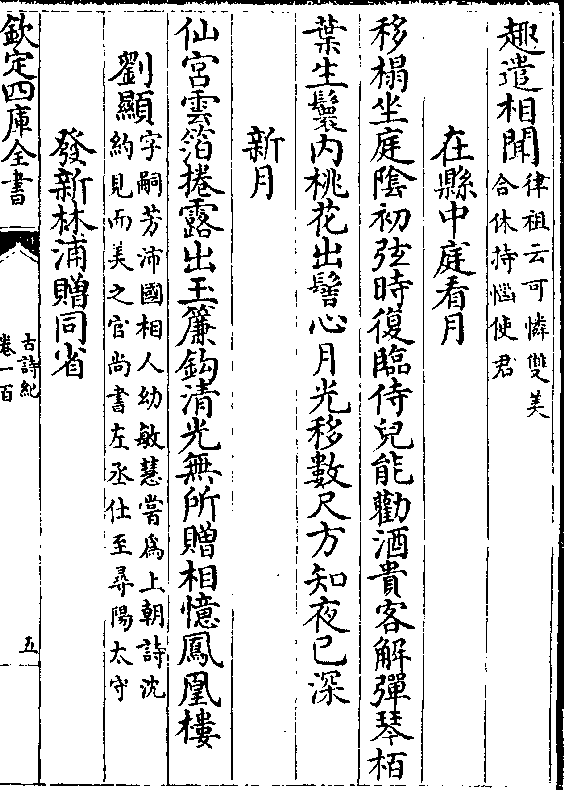 趣遣相聞律祖云可憐雙美
合休持惱使君
在縣中庭看月
移榻坐庭陰初弦時復臨侍兒能勸酒貴客解彈琴栢
葉生鬟内桃花出髻心月光移數尺方知夜已深
新月
仙宮雲箔捲露出玉簾鈎清光無所贈相憶鳳凰樓
劉顯字嗣芳沛國相人幼敏慧嘗爲上朝詩沈
約見而美之官尚書左丞仕至尋陽太守
發新林浦贈同省
欽定四庫全書
古詩紀
卷一百
五